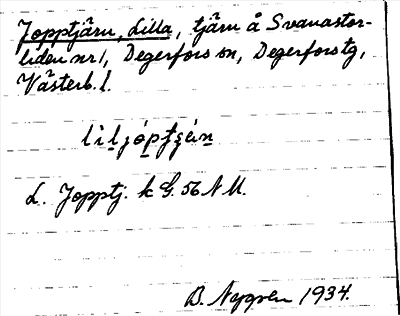 Jopptjärn, Lilla, tjärn å Svanastor-
liden nr 1, Degerfors sn, Degerfors tg,
Västerb. l.
L. Jopptj. k G. 56 NM.
B. Nygren 1934.